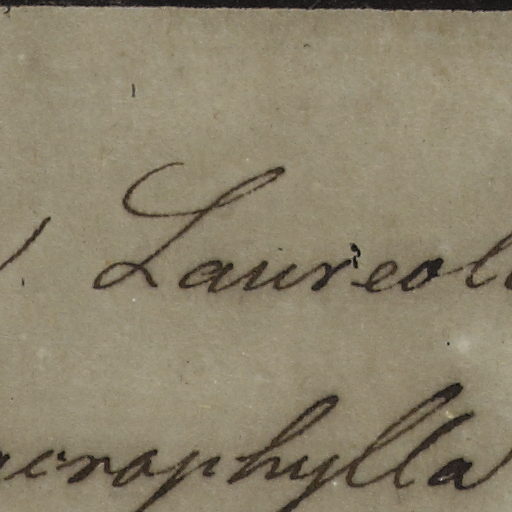 . Laureol
acrophylla